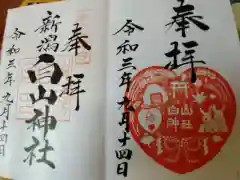 奉拝
新潟白山神社
令和三年九月十四日
奉拝
令和三年九月十四日
白山神社